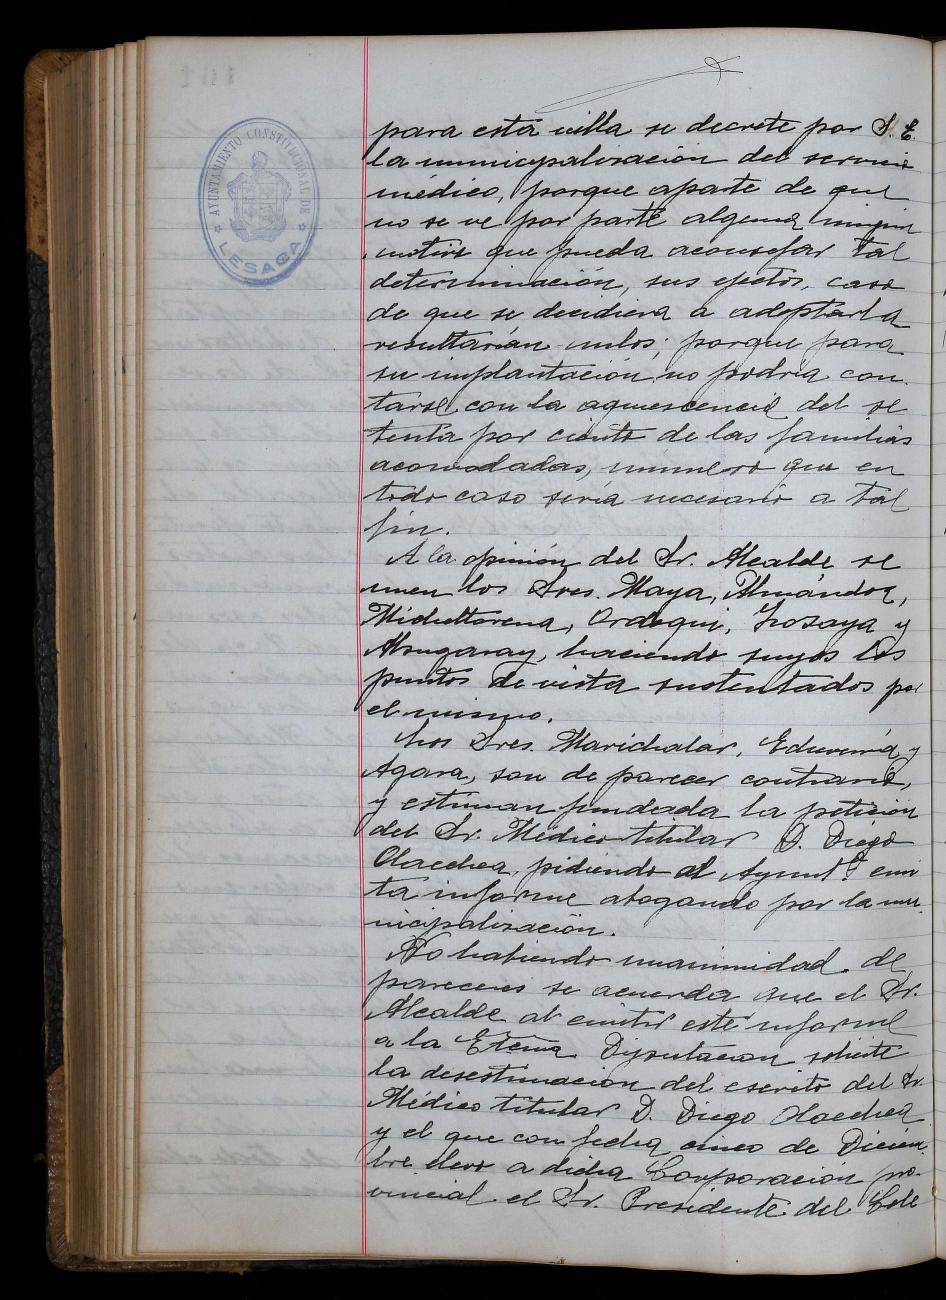 AYUNTAMIENTO CONSTITUCIONAL DE
LESACA
para esta villa se decrete por S. E.
la municipalización del servicio
médico, porque aparte de que
no se ve por parte alguna ningún
motivo que pueda aconsejar tal
determinación, sus efectos, caso
de que se decidiera a adoptarla
resultarían nulos; porque para
su implantación no podría con-
tarse con la aquiescencia del se
tenta por ciento de las familias
acomodadas, número que en
todo caso sería necesario a tal
fin.
A la opinión del Sr. Alcalde se
unen los Sres. Maya, Almándoz,
Micheltorena, Ordoqui, Goñi
Mongaray, haciendo suyos los
puntos de vista sustentados por
el mismo.
Los Sres. Marichalar, Echeverría y
Agara, son de parecer contrario,
y estiman fundada la petición
del Sr. Médico titular D. Diego
Olaechea, pidiendo al Ayunt.º emi
ta informe abogando por la mu-
nicipalización.
No habiendo unanimidad de
pareceres se acuerda que el Sr.
Alcalde al emitir este informe
a la Excma Diputación solicite
la desestimación del escrito del Sr.
Médico titular D. Diego Olaechea
y el que con fecha cinco de Diciem-
bre elevó a dicha Corporación pro-
vincial el Sr. Presidente del Cole